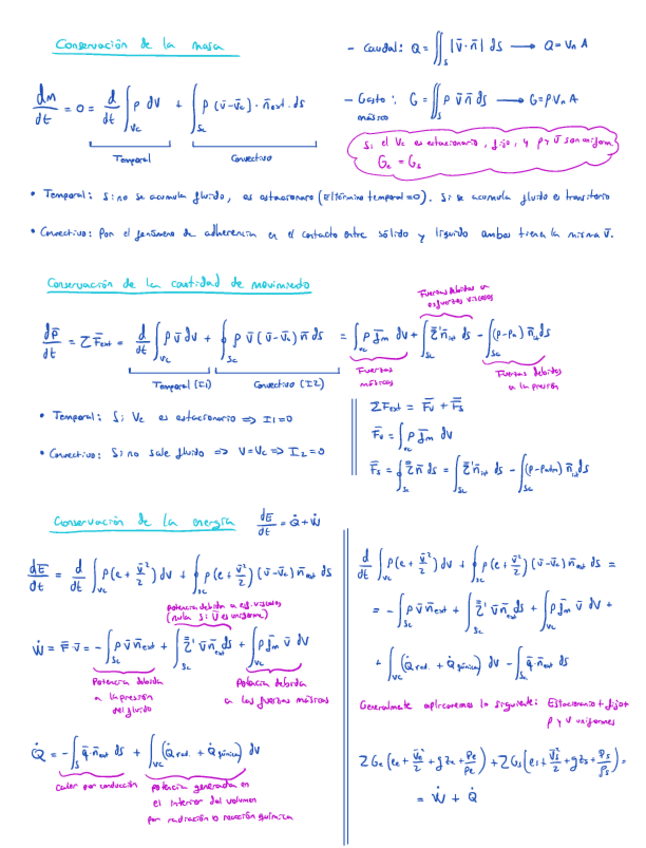 Conservación de la masa
dm/dt = 0 = d/dt ∫_Vc ρ dV + ∫_Sc ρ (v̄-v̄c) · n̄ext · ds
Temporal
Convectivo
- Caudal: Q = ∬_S |v̄·n̄| ds → Q = Vn A
- Gasto: G = ∬_S ρ v̄ n̄ ds → G = ρ Vn A
másico
Si el Vc es estacionario, fijo, y ρ y v̄ son uniform
Ge = Gs
• Temporal: Si no se acumula fluido, es estacionario (El término temporal = 0). Si se acumula fluido es transitorio
• Convectivo: Por el fenómeno de adherencia en el contacto entre sólido y líquido ambos tienen la misma v̄.
Conservación de la cantidad de movimiento
Fuerzas debidas a
esfuerzos viscosos
dp̄/dt = Σ F̄ext = d/dt ∫_Vc ρ v̄ dV + ∮_Sc ρ v̄ (v̄-v̄c) n̄ ds = ∫_Vc ρ f̄m dV + ∫_Sc τ̿' n̄ ds - ∫_Sc (p-pa) n̄ ds
Temporal (I1)
Convectivo (I2)
Fuerzas
másicas
Fuerzas debidas
a la presión
• Temporal: Si Vc es estacionario => I1=0
• Convectivo: Si no sale fluido => V=Vc => I2=0
ΣFext = F̄v + F̄s
F̄v = ∫_Vc ρ f̄m dV
F̄s = ∮_Sc τ̿ n̄ ds = ∫_Sc τ̿' n̄ ds - ∫_Sc (p-patm) n̄ ds
Conservación de la energía dE/dt = Q̇+Ẇ
dE/dt = d/dt ∫_Vc ρ(e + v̄²/2) dV + ∮_Sc ρ(e + v̄²/2) (v̄-v̄c) n̄ext ds
potencia debida a esf. viscosos
(nula si v̄ es uniforme)
Ẇ = F̄ v̄ = - ∫_Sc p v̄ n̄ext + ∫_Sc τ̿' v̄ n̄ext ds + ∫_Vc ρ f̄m v̄ dV
Potencia debida
a la presión
del fluido
Potencia debida
a las fuerzas másicas
Q̇ = - ∫_S q̄·n̄ext ds + ∫_Vc (Q̇rad. + Q̇química) dV
Calor por conducción
potencia generada en
el interior del volumen
por radiación o reacción química
d/dt ∫_Vc ρ(e + v̄²/2) dV + ∮_Sc ρ(e + v̄²/2) (v̄-v̄c) n̄ext ds =
= - ∫_Sc p v̄ n̄ext + ∫_Sc τ̿' v̄ n̄ext ds + ∫_Vc ρ f̄m v̄ dV +
+ ∫_Vc (Q̇rad. + Q̇química) dV - ∫_Sc q̄·n̄ext ds
Generalmente aplicaremos lo siguiente: Estacionario + fijo +
ρ y v uniformes
ΣGe (ee + v̄e²/2 + gze + pe/ρe) + ΣGs (es + v̄s²/2 + gzs + ps/ρs) =
= Ẇ + Q̇